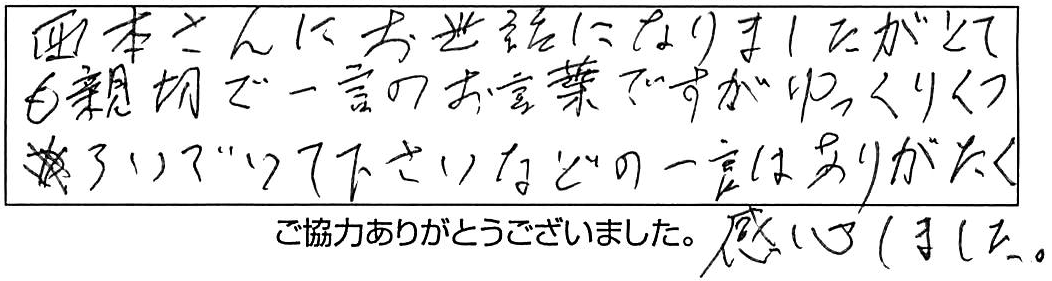 西本さんにお世話になりましたがとて
も親切で一言のお言葉ですがゆっくりくつ
ろいでいて下さいなどの一言はありがたく
ご協力ありがとうございました。 感心しました。